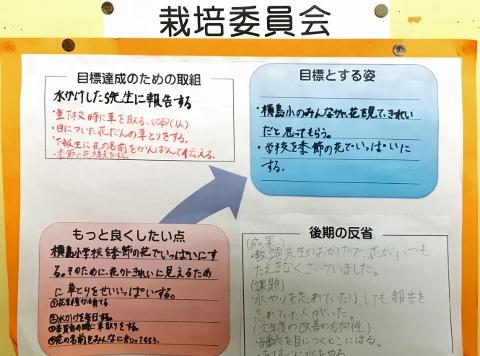 栽培委員会
目標達成のための取組
水かけしたら先生に報告する
・登校時に草を取る。
・目についた花だんの草とりをする。
・下級生に花の名前をかんばんで伝える。
・季節の花植えをする。
目標とする姿
・横島小のみんなが、花を見て、きれい
だと思ってもらう。
・学校を季節の花でいっぱいに
する。
もっと良くしたい点
横島小学校を季節の花でいっぱいにす
る。そのために、花がきれいに見えるため
に草とりをせいいっぱいする。
②水かけを毎日する。
③委員会の時に草取りをする。
④花の名前をみんなに知ってもらう。
後期の反省
(成果)
教頭先生のおかげで、花がいつも
たえまなくさいていました。
(課題)
水やりを忘れていたり、しても報告を
忘れていた人がいた。
(次年度の改善の方向性)
を目につくとこにはる。